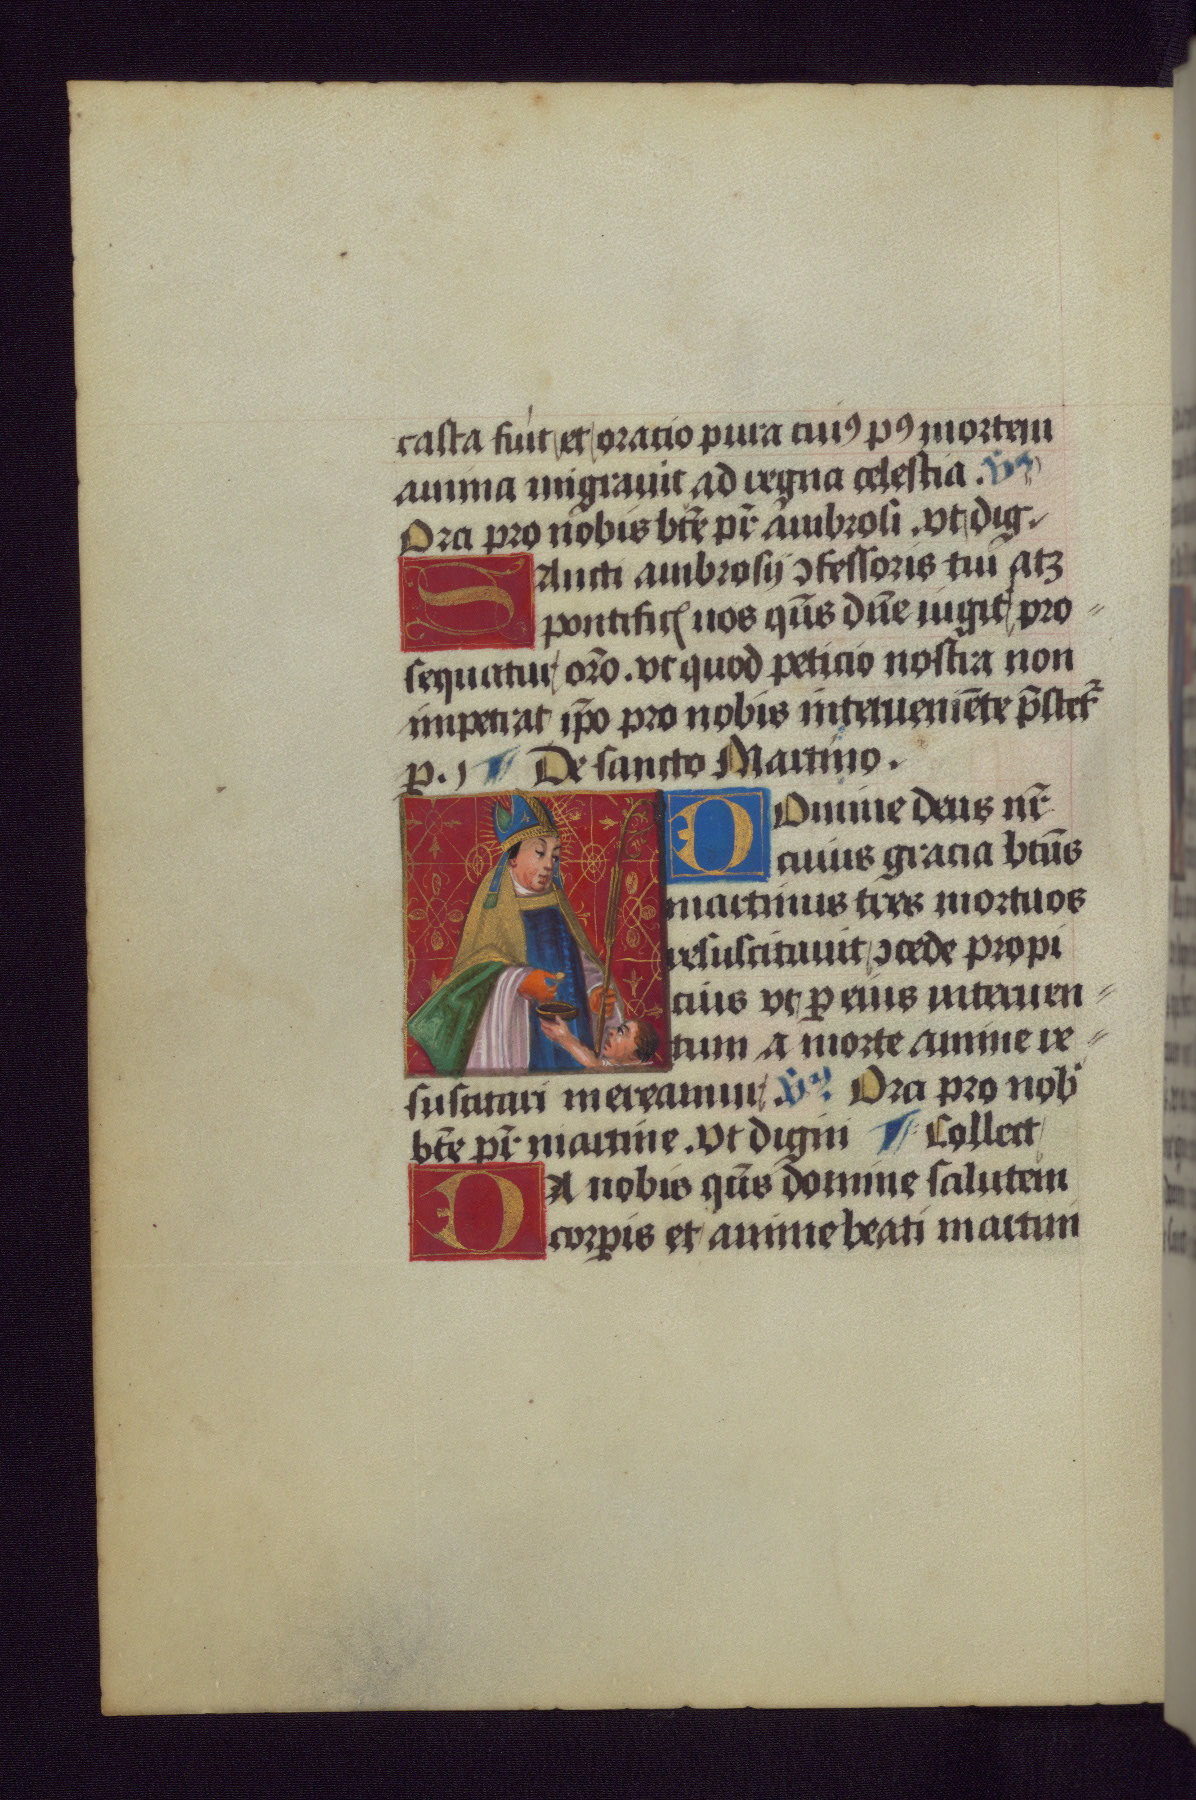 casta fuit et oratio pura cuiꝯ pꝯ mortem
anima migrauit ad regna celestia . v̄s
Ora pro nobis bt̄e pr̄ ambrosi .vt dig.
SAncti ambrosij ↄfessoris tui atꝫ
pontific̄ nos qūs dn̄e iugit̉ pro
sequatur or̄o . vt quod peticio nostra non
impetrat ip̄o pro nobis interueniēte p̄stet̄
p. ı ¶ De sancto Martino .
DOmine deus nr̄
cuius gracia bt̄us
martinus tres mortuos
resuscitauit ↄcede propi
cius vt ꝑ eius interuen
tum a morte anime re
suscitari mereamur . v̄s Ora pro nob̉
bt̄e pr̄ martine . vt digni ¶ Collect
DA nobis qūs domine salutem
corꝑis et anime beati martini